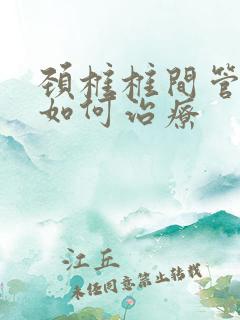 颈椎椎间管
如何治疗
江丘
未经同意禁止转载